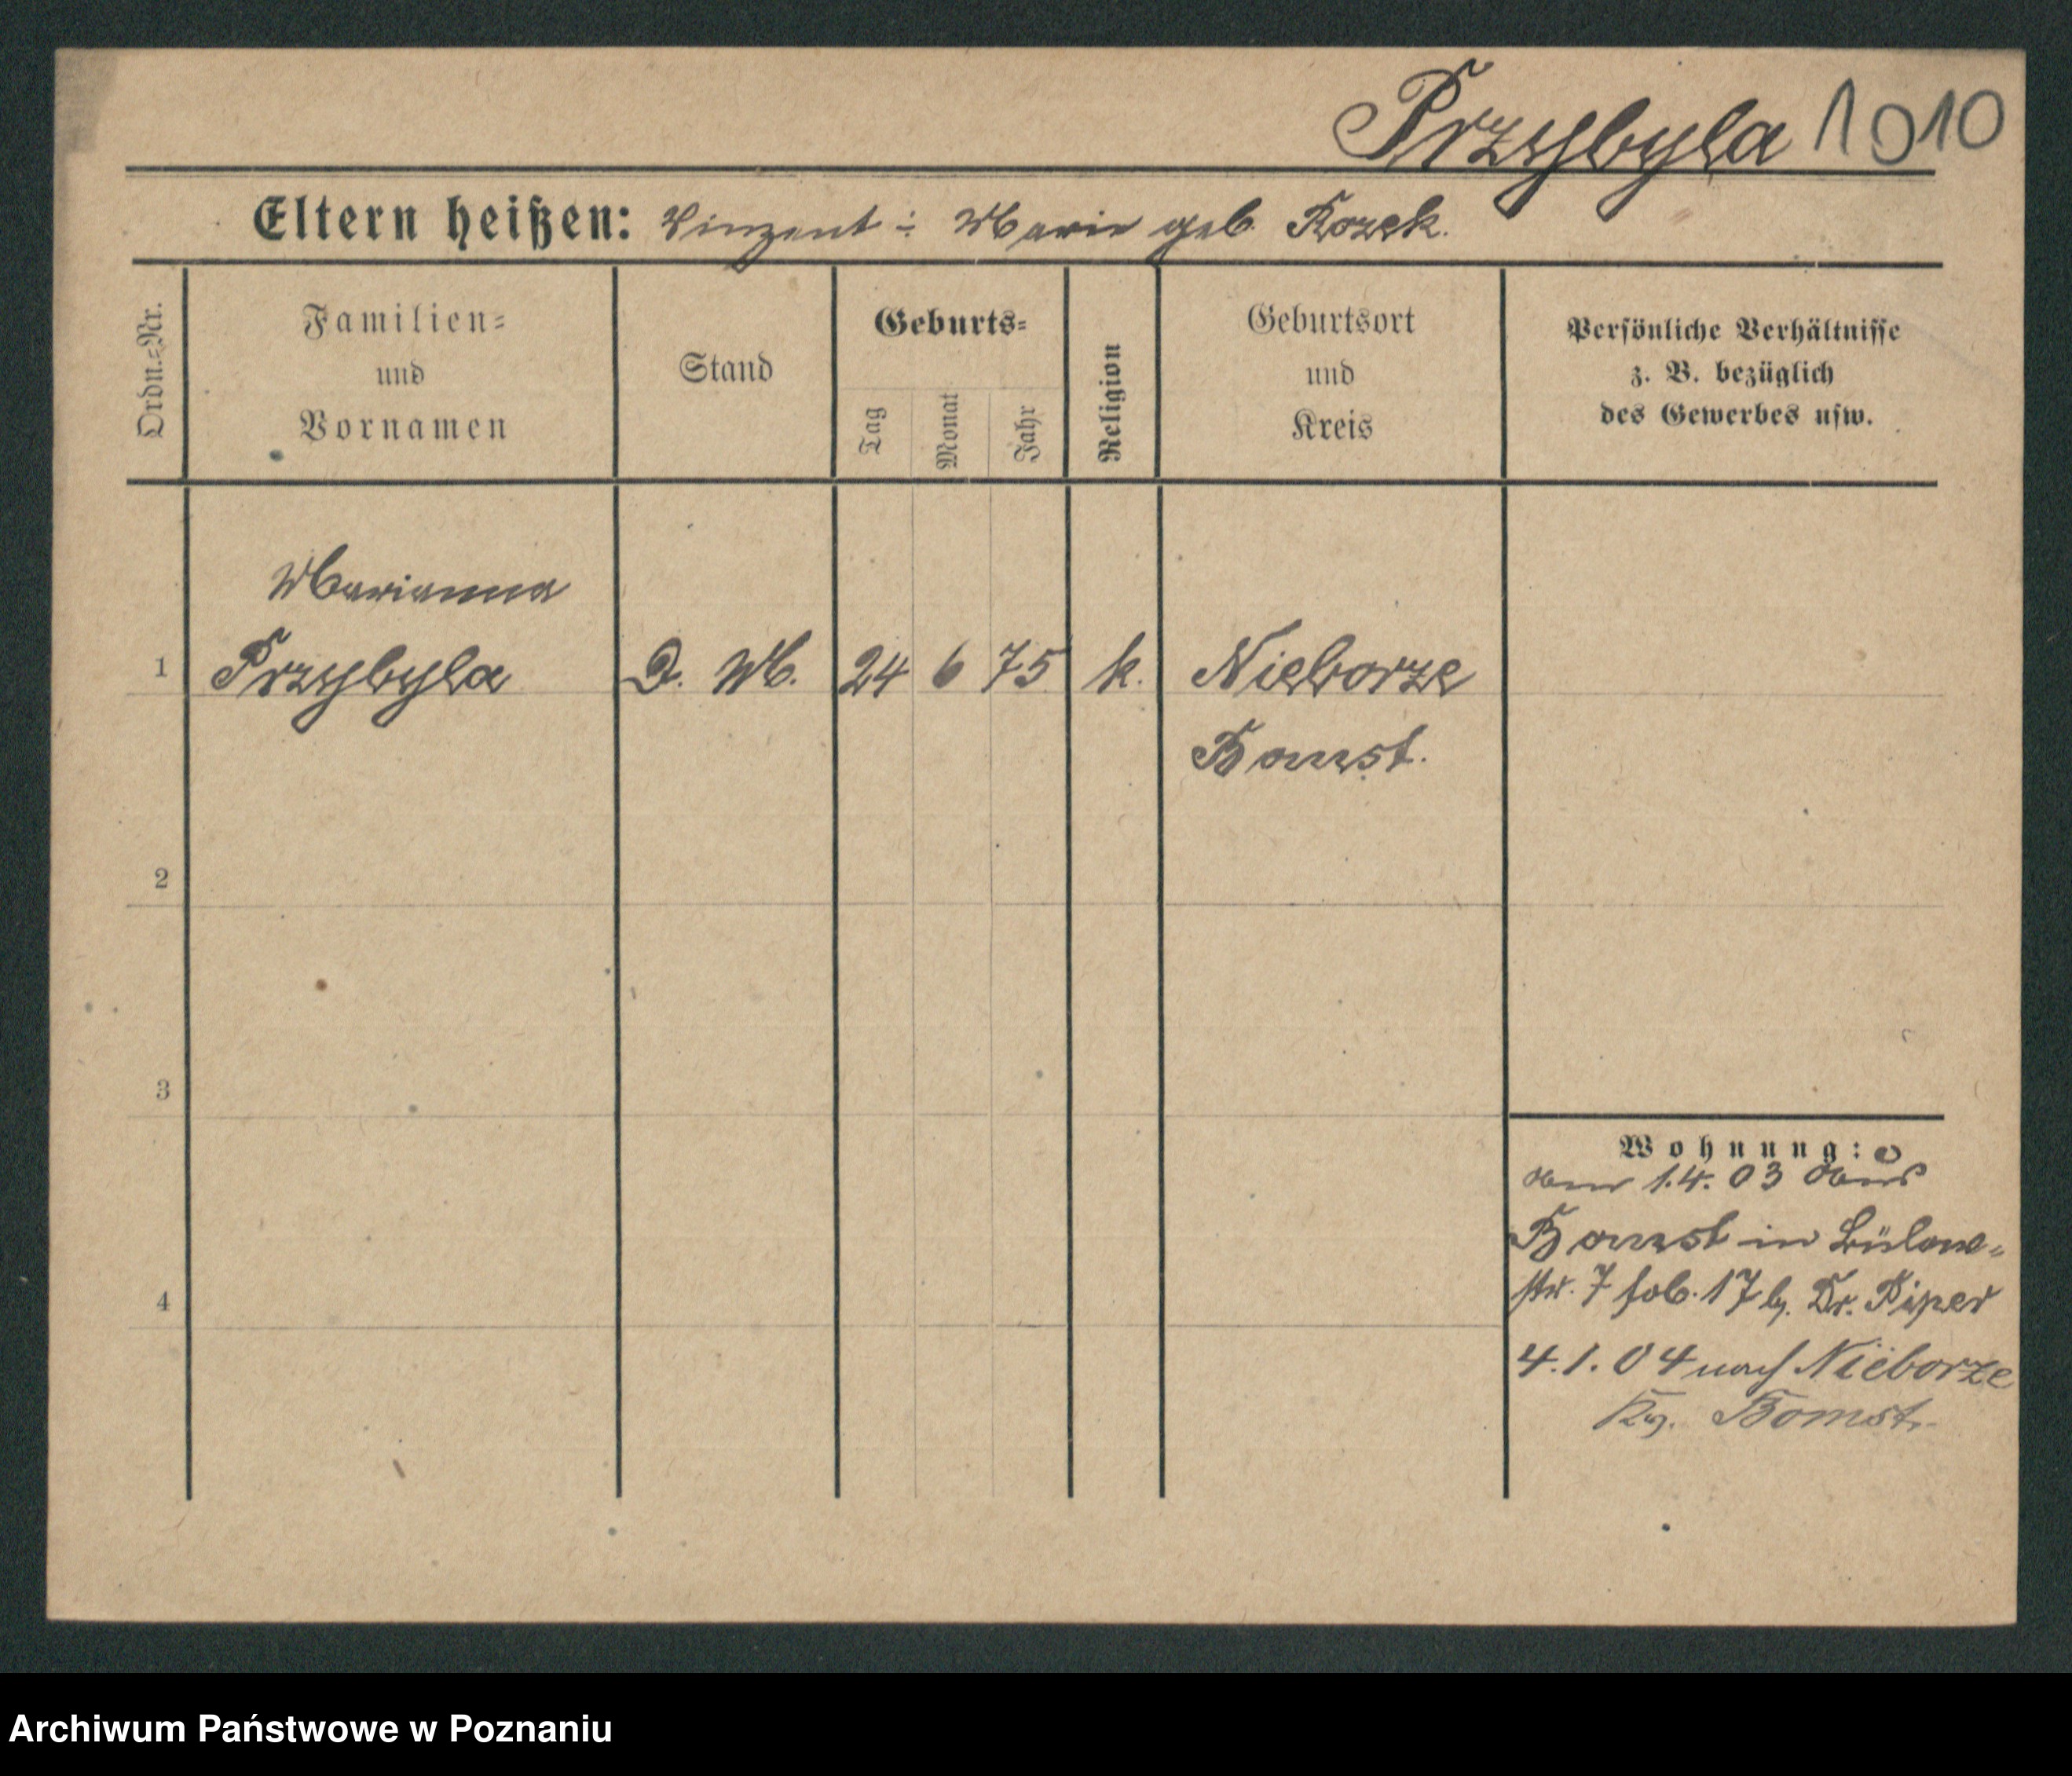 Przybyla 1010
Eltern heißen: Vinzent : Marie geb. Kozek.
Ordn.=Nr.
Familien=
und
Vornamen
Stand
Geburts=
Tag
Monat
Jahr
Religion
Geburtsort
und
Kreis
Persönliche Verhältnisse
z. B. bezüglich
des Gewerbes usw.
Marianna
1 Przybyla D. M. 24 6 75 k. Nieborze
Bomst.
2
3
Wohnung:
am 1.4.03 aus
Bomst in Bülow=
4 str. 7 fol. 17 b. Dr. Piper
4.1.04 nach Nieborze
Kr. Bomst.
Archiwum Państwowe w Poznaniu